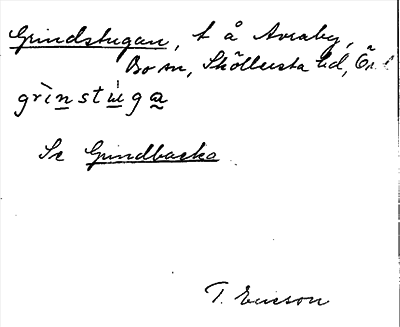 Grindstugan, t å Avraby,
Bo sn, Sköllersta hd, Ör
grinstuga
Se Grindbacka
T. Ericson